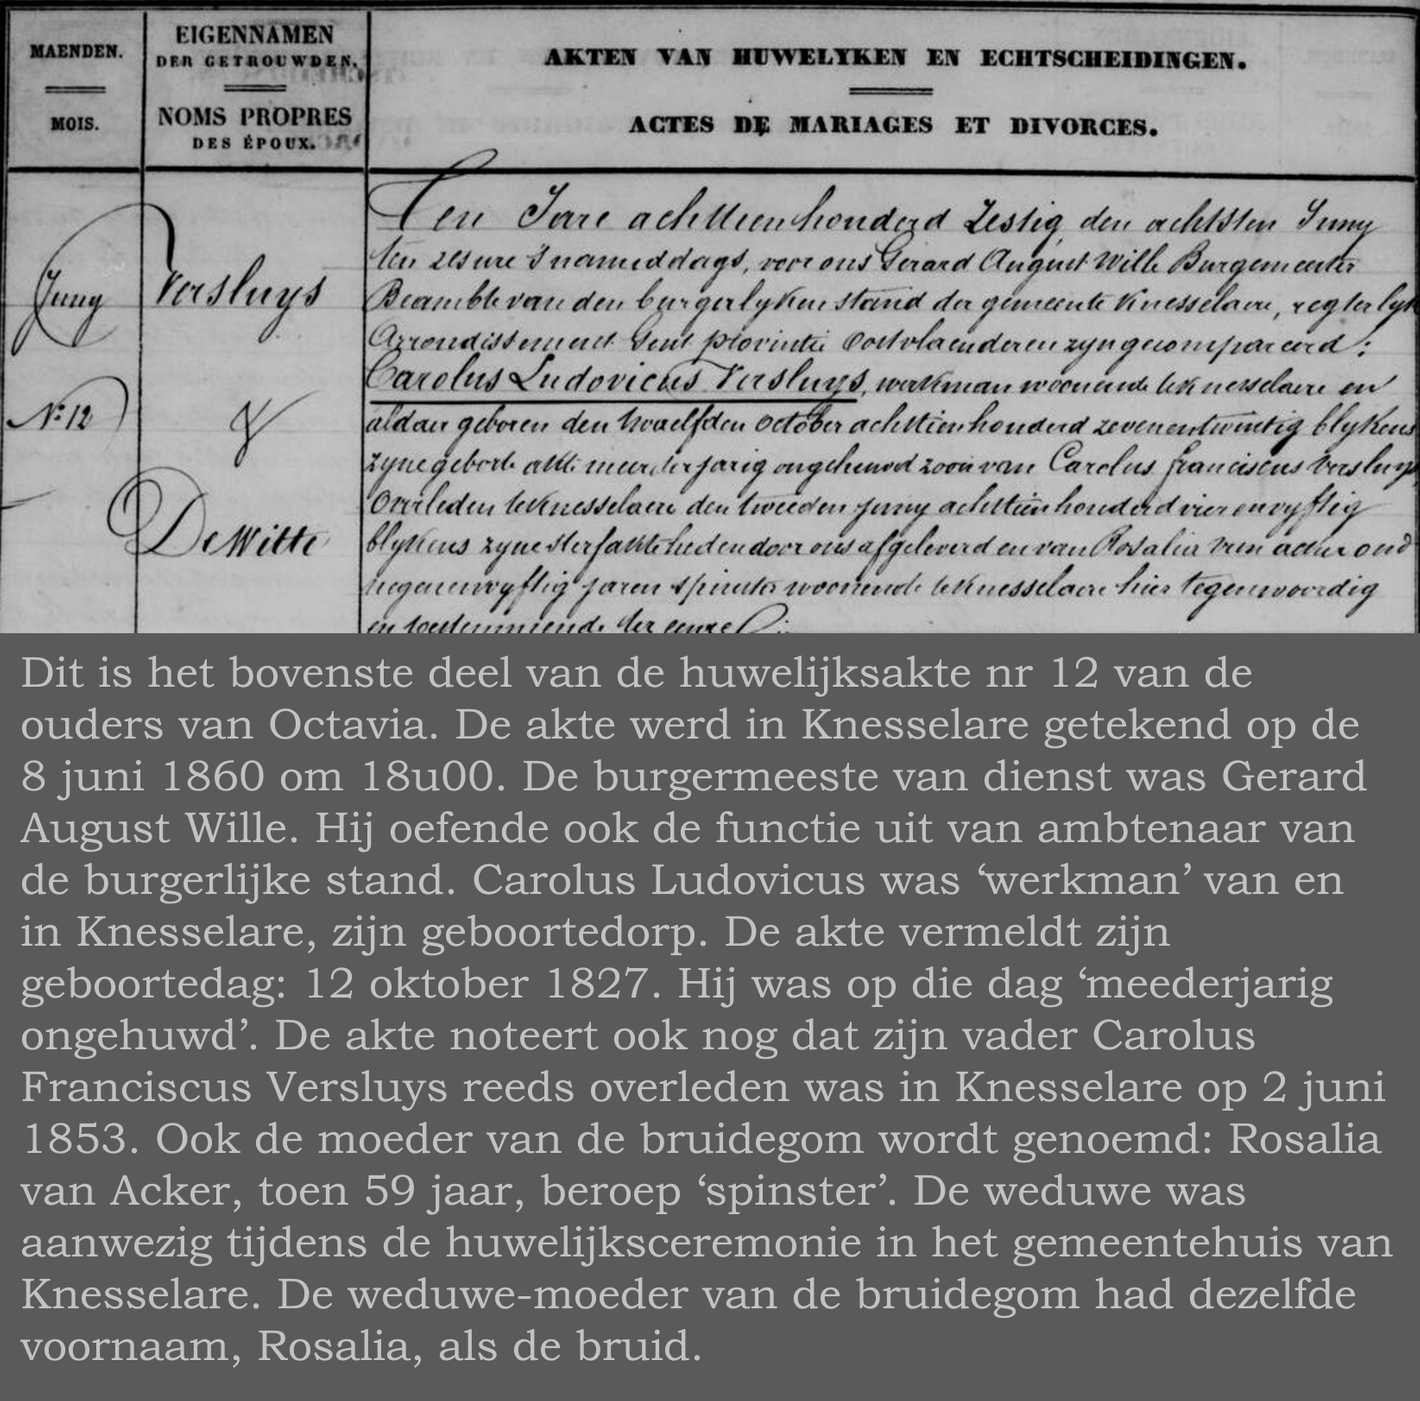 MAENDEN.
MOIS.
EIGENNAMEN
DER GETROUWDEN.
NOMS PROPRES
DES ÉPOUX.
AKTEN VAN HUWELYKEN EN ECHTSCHEIDINGEN.
ACTES DE MARIAGES ET DIVORCES.
Juny
Nº 12
Versluys
&
De Witte
Ten Jare achttienhonderd Zestig den achtsten Juny
ten zes ure 's namiddags, voor ons Gerard August Wille Burgemeester
Beambte van den burgerlyken stand der gemeente Knesselaere, regterlyk
Arrondissement Gent provintie Oostvlaenderen zyn gecompareerd:
Carolus Ludovicus Versluys, werkman woonende te Knesselaere en
aldaer geboren den twaelfden October achttienhonderd zevenentwintig blykens
zyne geborte akte meerderjarig ongehuwd zoon van Carolus Franciscus Versluys
Overleden te Knesselaere den tweeden Juny achttienhonderd vierenvyftig
blykens zyne sterfakte heden door ons afgeleverd en van Rosalia Van acker oud
negenenvyftig jaren spinster woonende te Knesselaere hier tegenwoordig
en toestemmende ter eenre
Dit is het bovenste deel van de huwelijksakte nr 12 van de
ouders van Octavia. De akte werd in Knesselare getekend op de
8 juni 1860 om 18u00. De burgermeeste van dienst was Gerard
August Wille. Hij oefende ook de functie uit van ambtenaar van
de burgerlijke stand. Carolus Ludovicus was ‘werkman’ van en
in Knesselare, zijn geboortedorp. De akte vermeldt zijn
geboortedag: 12 oktober 1827. Hij was op die dag ‘meederjarig
ongehuwd’. De akte noteert ook nog dat zijn vader Carolus
Franciscus Versluys reeds overleden was in Knesselare op 2 juni
1853. Ook de moeder van de bruidegom wordt genoemd: Rosalia
van Acker, toen 59 jaar, beroep ‘spinster’. De weduwe was
aanwezig tijdens de huwelijksceremonie in het gemeentehuis van
Knesselare. De weduwe-moeder van de bruidegom had dezelfde
voornaam, Rosalia, als de bruid.